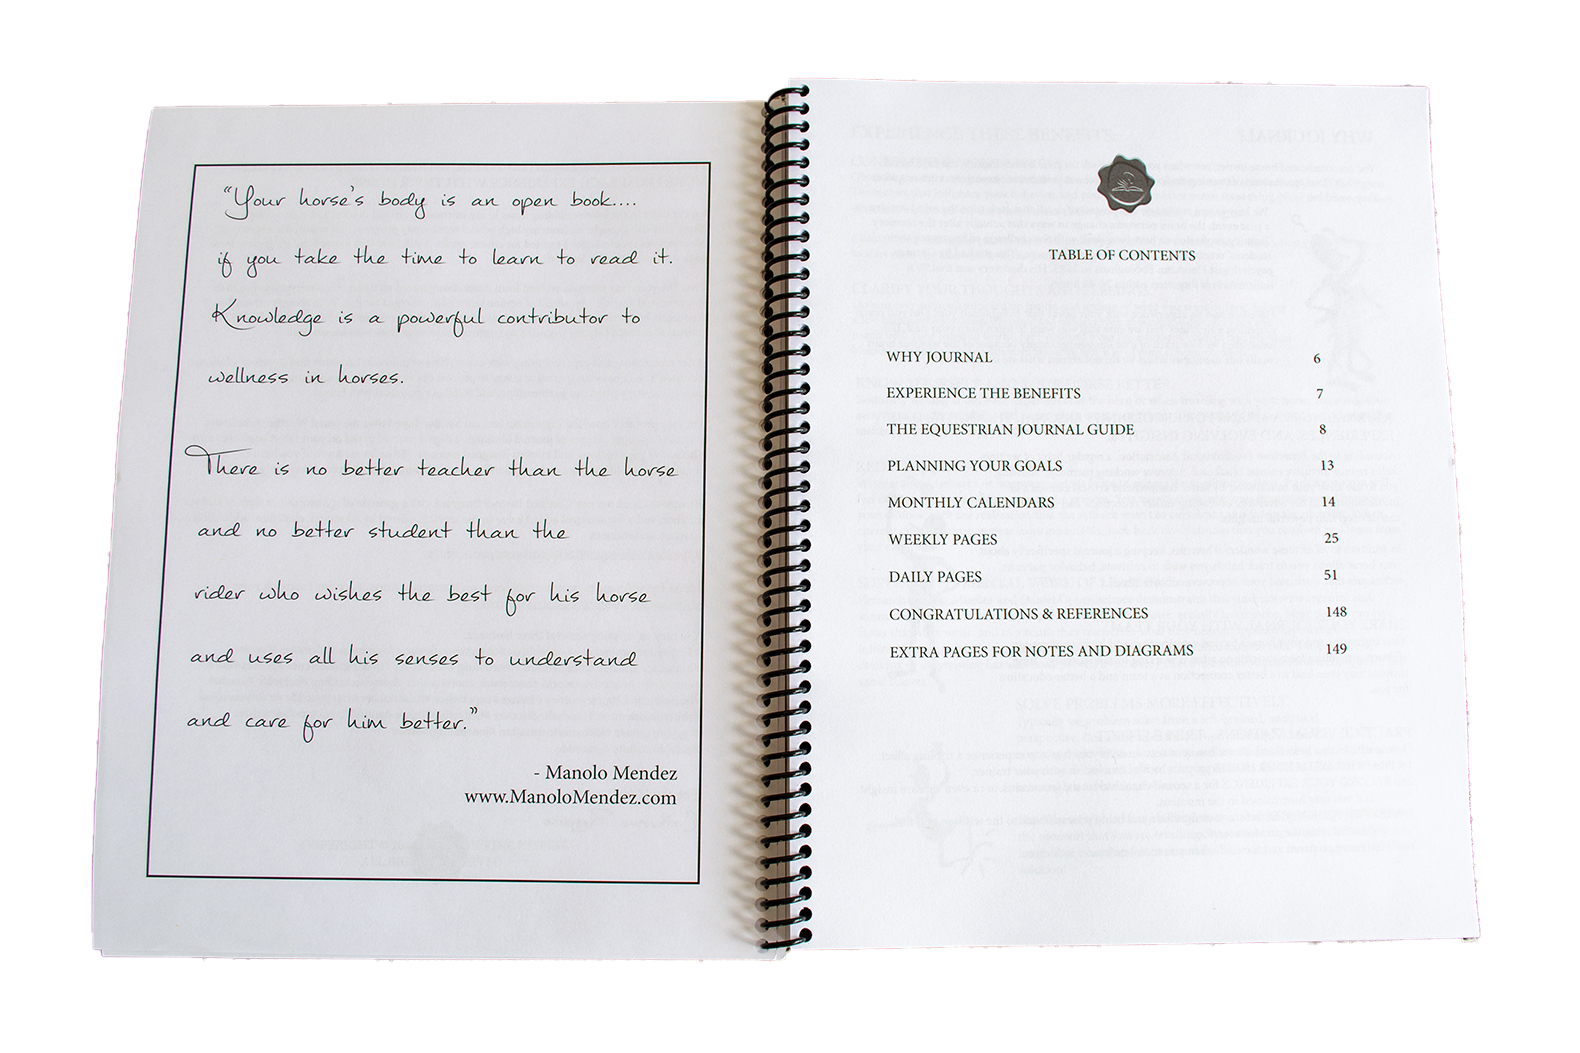 “Your horse’s body is an open book....
if you take the time to learn to read it.
Knowledge is a powerful contributor to
wellness in horses.
There is no better teacher than the horse
and no better student than the
rider who wishes the best for his horse
and uses all his senses to understand
and care for him better.”
- Manolo Mendez
www.ManoloMendez.com
TABLE OF CONTENTS
WHY JOURNAL 6
EXPERIENCE THE BENEFITS 7
THE EQUESTRIAN JOURNAL GUIDE 8
PLANNING YOUR GOALS 13
MONTHLY CALENDARS 14
WEEKLY PAGES 25
DAILY PAGES 51
CONGRATULATIONS & REFERENCES 148
EXTRA PAGES FOR NOTES AND DIAGRAMS 149